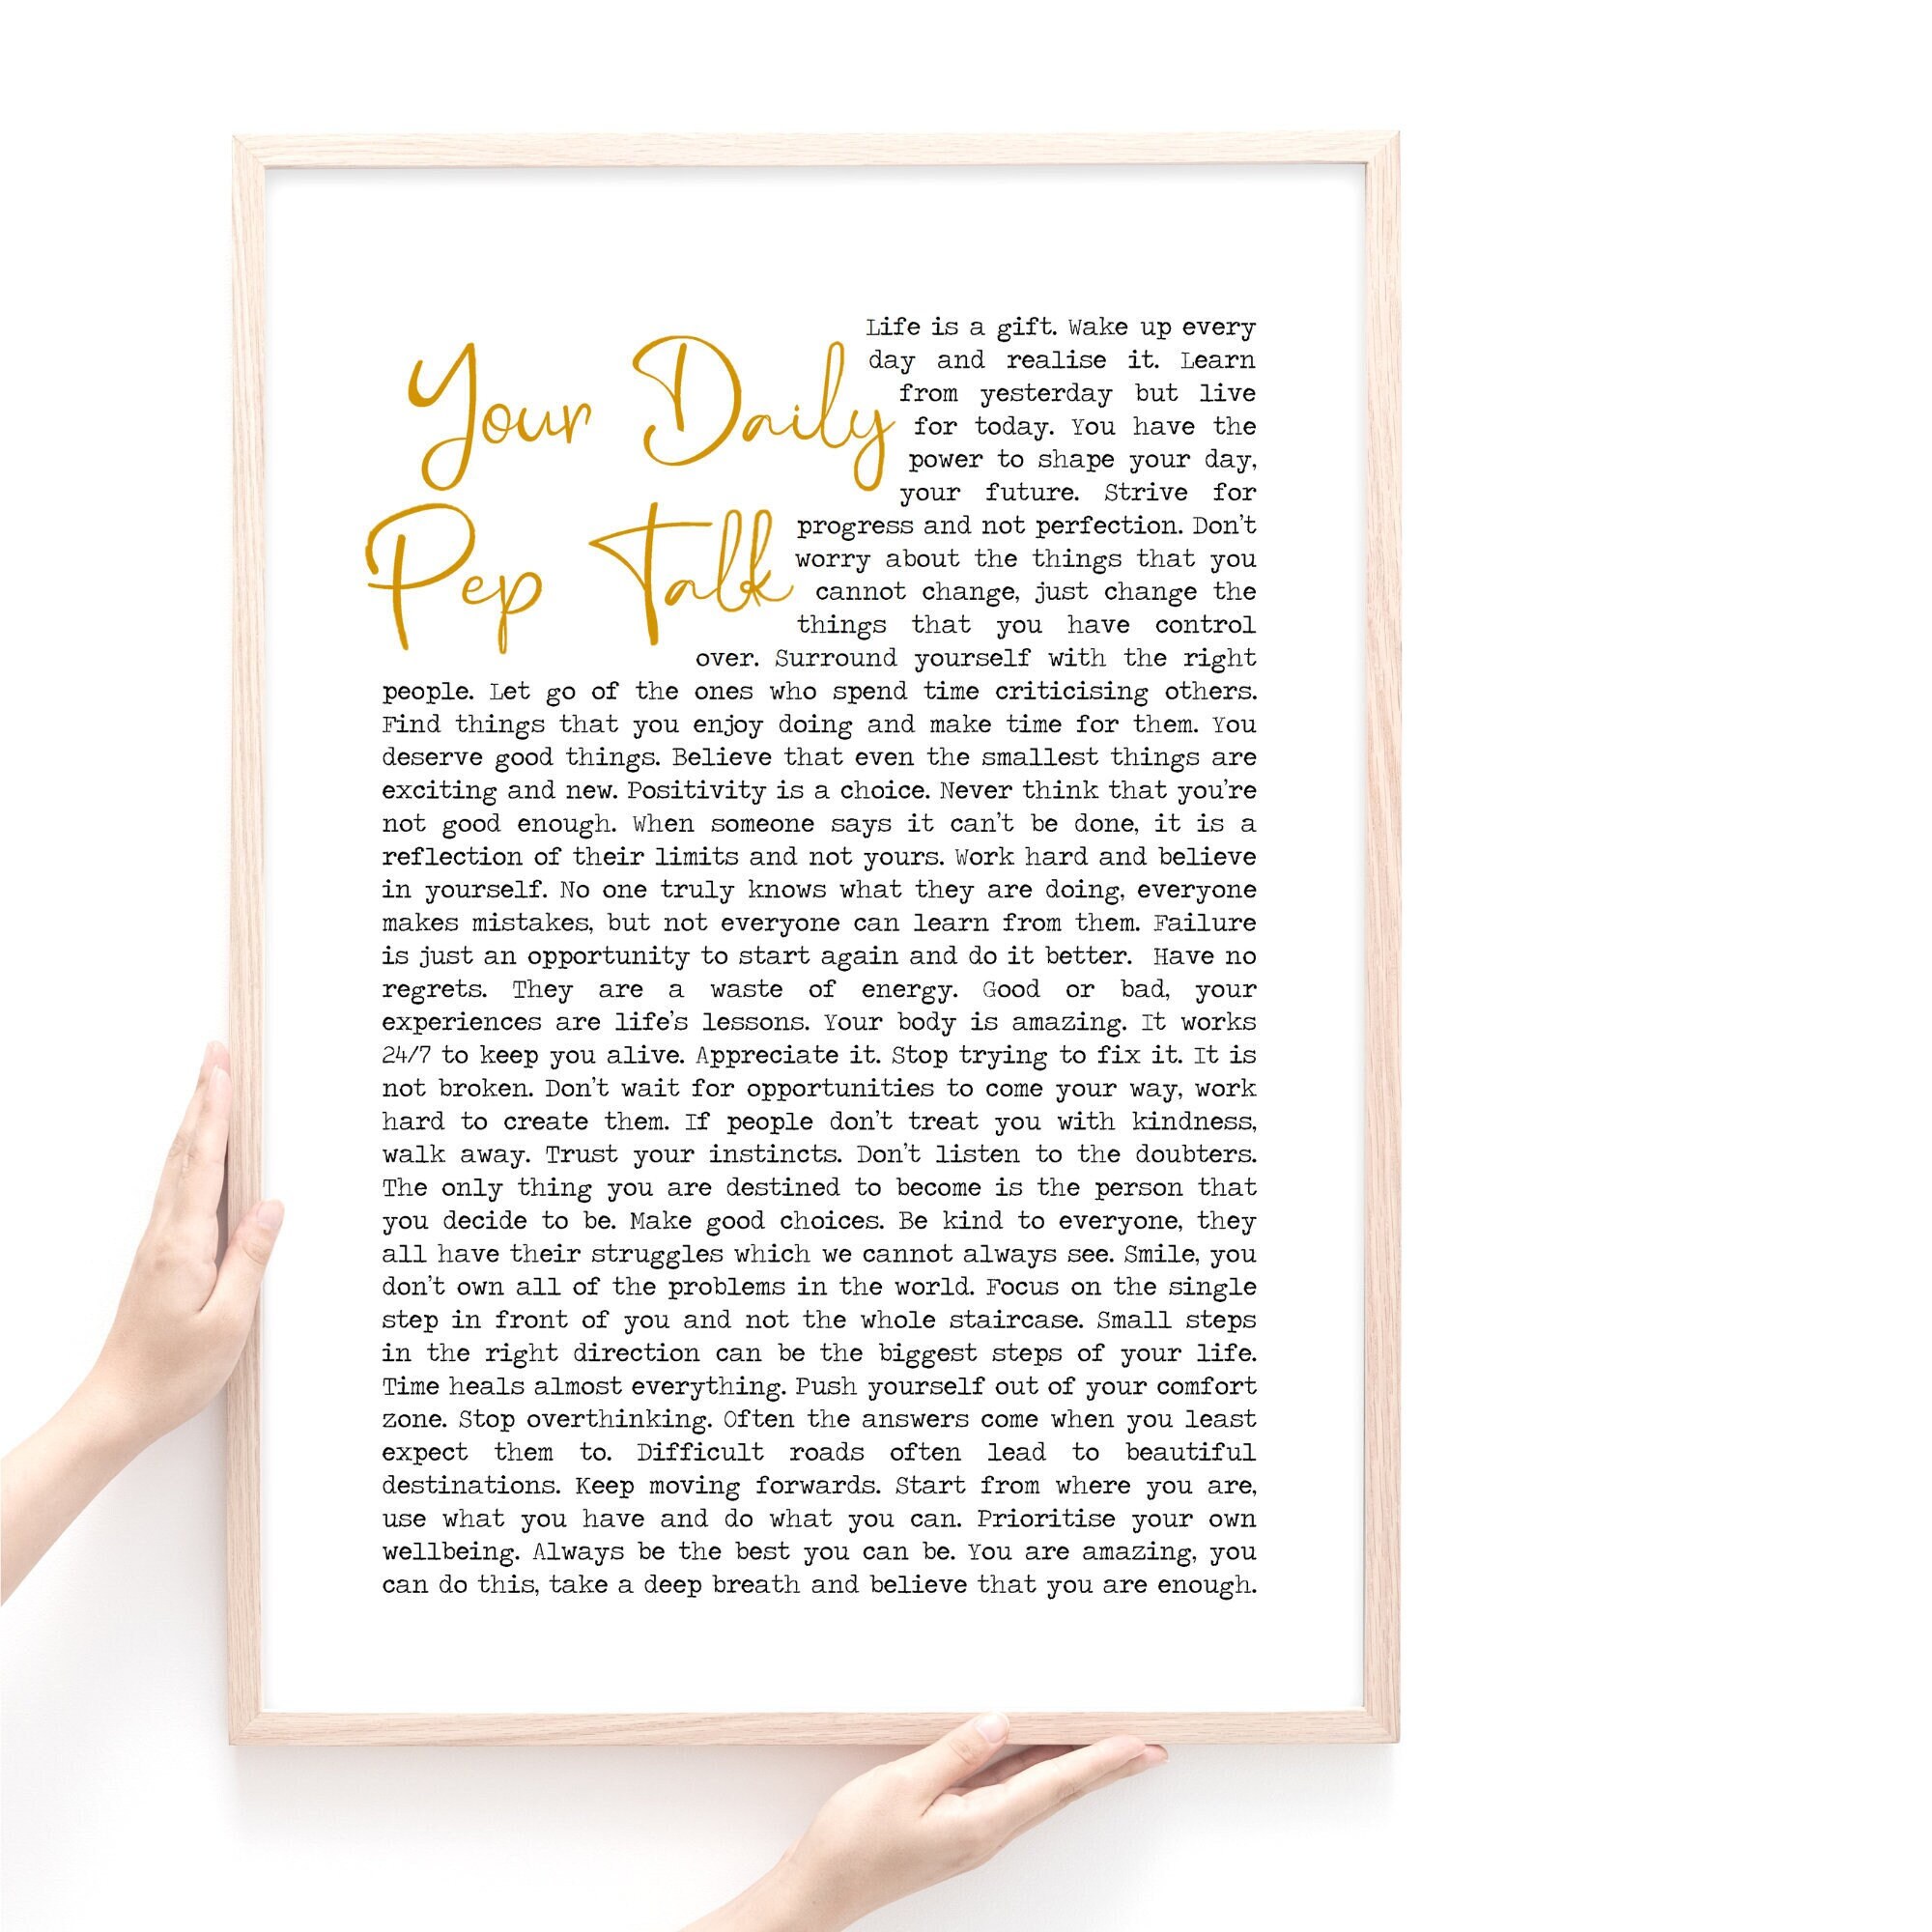 Your Daily
Pep Talk
Life is a gift. Wake up every
day and realise it. Learn
from yesterday but live
for today. You have the
power to shape your day,
your future. Strive for
progress and not perfection. Don't
worry about the things that you
cannot change, just change the
things that you have control
over. Surround yourself with the right
people. Let go of the ones who spend time criticising others.
Find things that you enjoy doing and make time for them. You
deserve good things. Believe that even the smallest things are
exciting and new. Positivity is a choice. Never think that you're
not good enough. When someone says it can't be done, it is a
reflection of their limits and not yours. Work hard and believe
in yourself. No one truly knows what they are doing, everyone
makes mistakes, but not everyone can learn from them. Failure
is just an opportunity to start again and do it better. Have no
regrets. They are a waste of energy. Good or bad, your
experiences are life's lessons. Your body is amazing. It works
24/7 to keep you alive. Appreciate it. Stop trying to fix it. It is
not broken. Don't wait for opportunities to come your way, work
hard to create them. If people don't treat you with kindness,
walk away. Trust your instincts. Don't listen to the doubters.
The only thing you are destined to become is the person that
you decide to be. Make good choices. Be kind to everyone, they
all have their struggles which we cannot always see. Smile, you
don't own all of the problems in the world. Focus on the single
step in front of you and not the whole staircase. Small steps
in the right direction can be the biggest steps of your life.
Time heals almost everything. Push yourself out of your comfort
zone. Stop overthinking. Often the answers come when you least
expect them to. Difficult roads often lead to beautiful
destinations. Keep moving forwards. Start from where you are,
use what you have and do what you can. Prioritise your own
wellbeing. Always be the best you can be. You are amazing, you
can do this, take a deep breath and believe that you are enough.